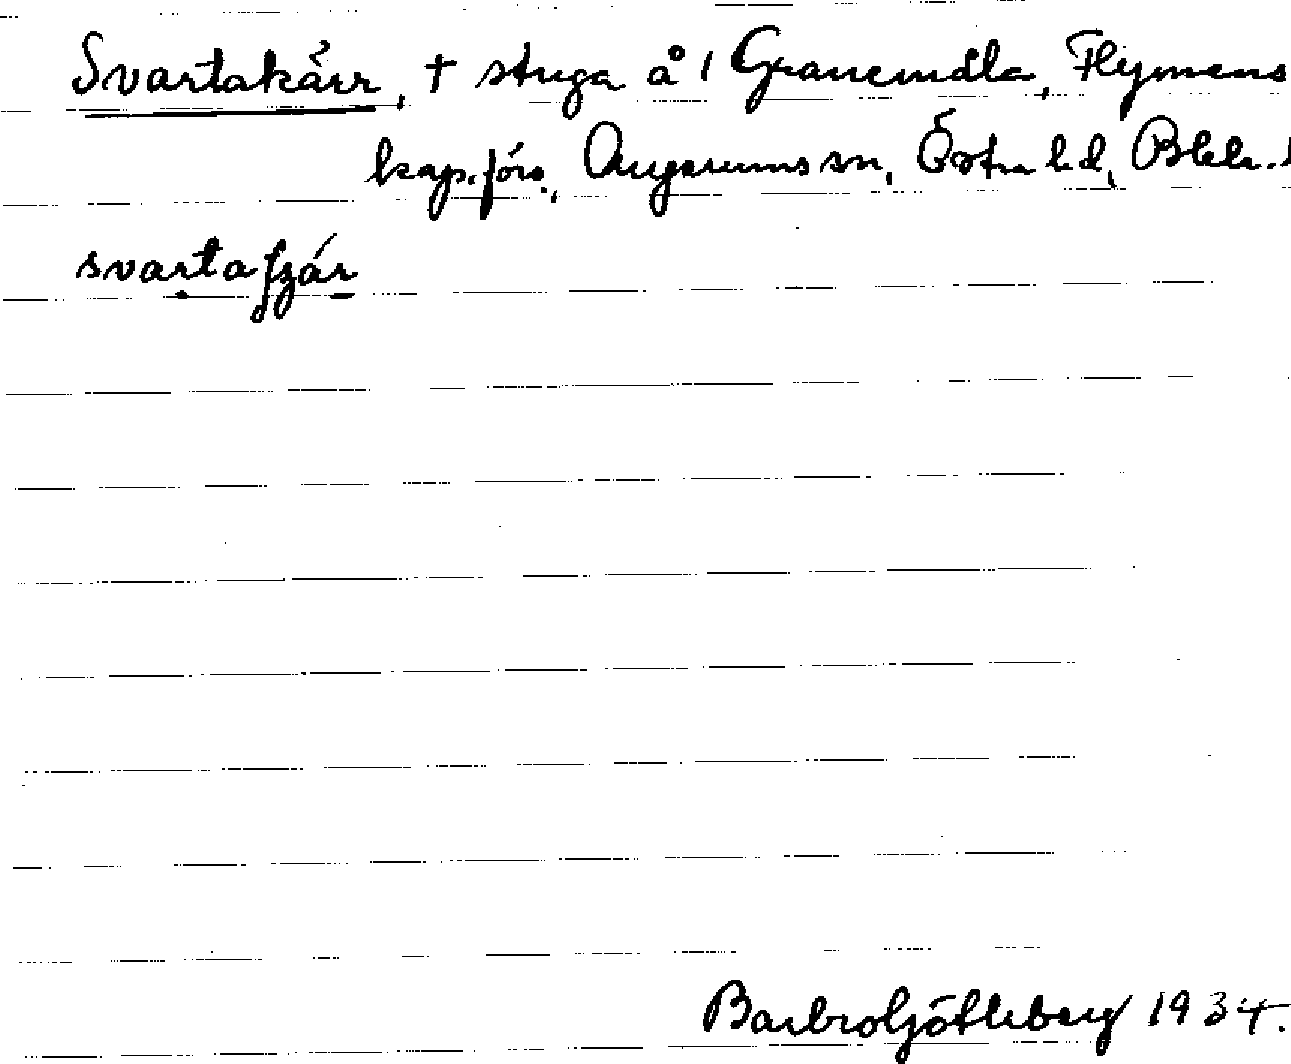 Svartakärr, † stuga å 1 Granemåla, Flymens
kap.förs., Augerums sn, Östra hd, Blek. l
svarta
Barbro Götleberg 1934.